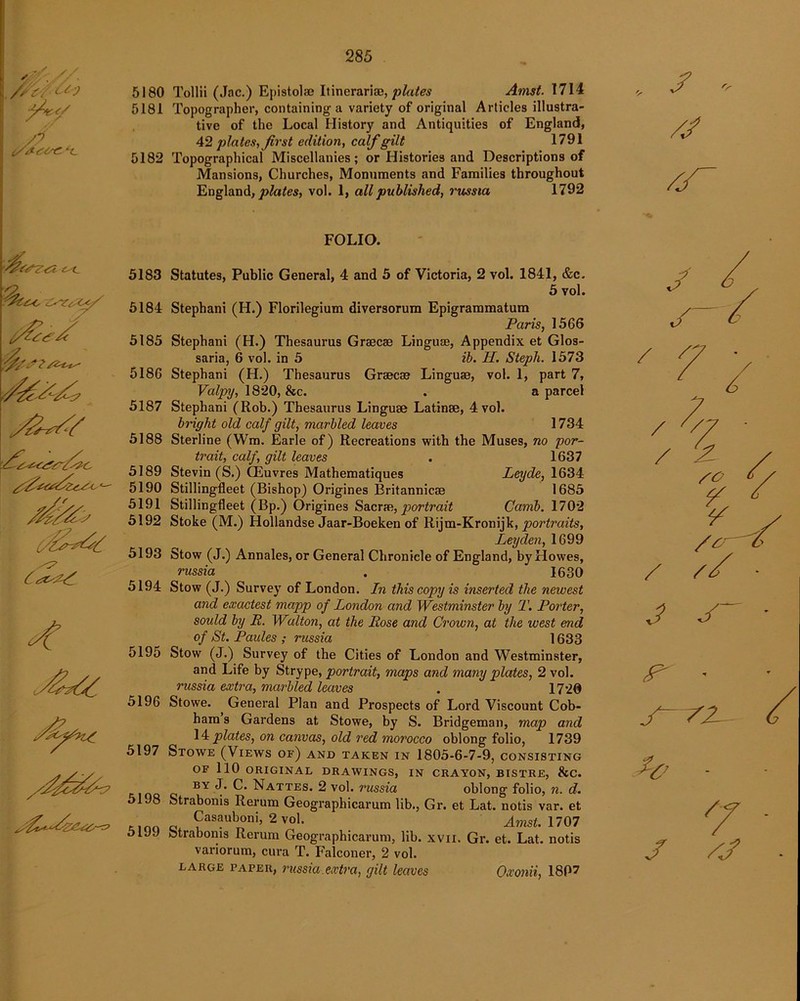 285
5180 Tollii (Jac.) Epistolæ Itinerariæ, plates Amst. 1714
5181 Topographer, containing a variety of original Articles illustra-
tive of the Local History and Antiquities of England,
42 plates, first edition, calf gilt 1791
5182 Topographical Miscellanies; or Histories and Descriptions of
Mansions, Churches, Monuments and Families throughout
England, plates, vol. 1, all published, russia 1792
FOLIO.
5183 Statutes, Public General, 4 and 5 of Victoria, 2 vol. 1841, &c.
5 vol.
5184 Stephani (H.) Florilegium diversorum Epigrammatum
Paris, 1566
5185 Stephani (H.) Thesaurus Græcæ Linguæ, Appendix et Glos-
saria, 6 vol. in 5 ib. H. Steph. 1573
5186 Stephani (H.) Thesaurus Græcæ Linguæ, vol. 1, part 7,
Valpy, 1820, &c. . a parcel
5187 Stephani (Rob.) Thesaurus Linguæ Latinæ, 4 vol.
bright old calf gilt, marbled leaves 1734
5188 Sterline (Wm. Earle of) Recreations with the Muses, no por-
trait, calf, gilt leaves . 1637
5189 Stevin (S.) Œuvres Mathematiques Leyde, 1634
5190 Stillingfleet (Bishop) Origines Britannicæ 1685
5191 Stillingfleet (Bp.) Origines Sacræ, portrait Camb. 1702
5192 Stoke (M.) Hollandse Jaar-Boeken of Rijm-Kronijk, portraits,
Leyden, 1699
5193 Stow (J.) Annales, or General Chronicle of England, by Howes,
russia . 1630
5194 Stow (J.) Survey of London. In this copy is inserted the newest
and exactest mapp of London and Westminster by T. Porter,
sould by R. Walton, at the Rose and Crown, at the west end
of St. Paules; russia 1633
5195 Stow (J.) Survey of the Cities of London and Westminster,
and Life by Strype, portrait, maps and many plates, 2 vol.
russia extra, marbled leaves . 1720
5196 Stowe. General Plan and Prospects of Lord Viscount Cob-
ham's Gardens at Stowe, by S. Bridgeman, map and
14 plates, on canvas, old red morocco oblong folio, 1739
5197 Stowe (Views of) and taken in 1805-6-7-9, consisting
of 110 original drawings, in crayon, bistre, &c.
by J. C. Nattes. 2 vol. russia oblong folio, n. d.
5198 Strabonis Rerum Geographicarum lib., Gr. et Lat. notis var. et
Casauboni, 2 vol. Amst. 1707
5199 Strabonis Rerum Geographicarum, lib. xvii. Gr. et. Lat. notis
variorum, cura T. Falconer, 2 vol.
large paper, russia extra, gilt leaves Oxonii, 1807